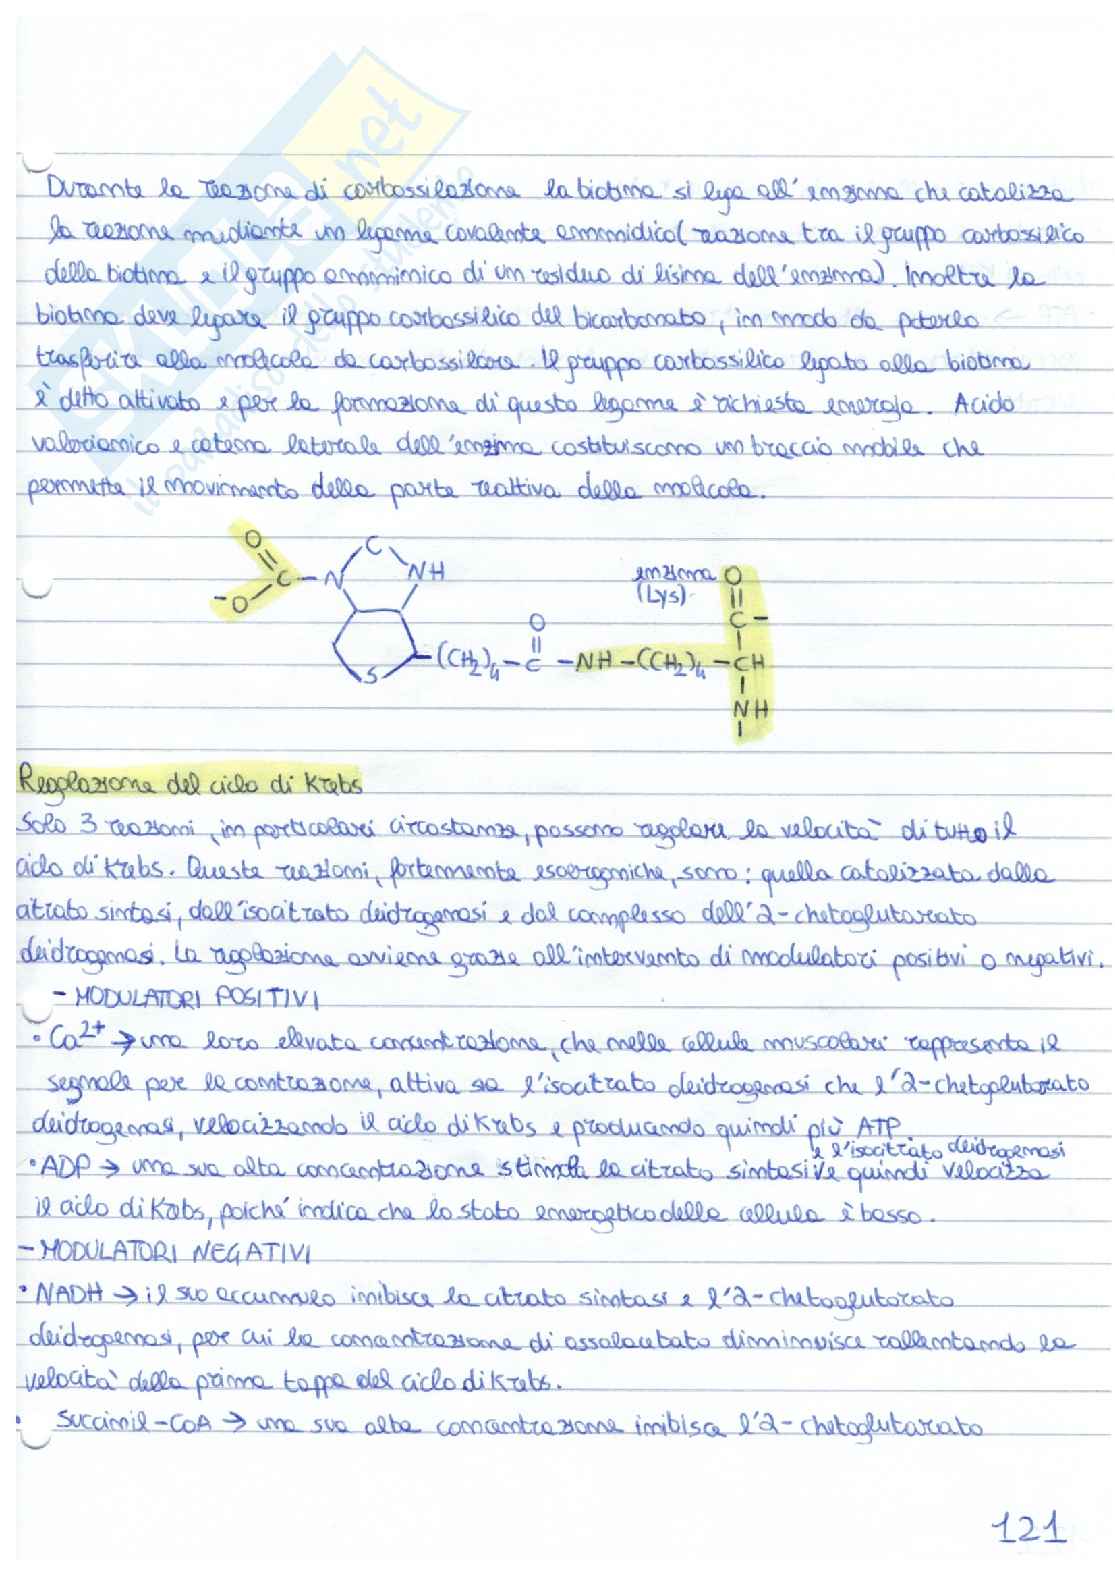 Durante la reazione di carbossilazione la biotina si lega all'enzima che catalizza
la reazione mediante un legame covalente ammidico (reazione tra il gruppo carbossilico
della biotina e il gruppo amminico di un residuo di lisina dell'enzima). Inoltre la
biotina deve legare il gruppo carbossilico del bicarbonato, in modo da poterlo
trasferire alla molecola da carbossilare. Il gruppo carbossilico legato alla biotina
è detto attivato e per la formazione di questo legame è richiesta energia. Acido
valerianico e catena laterale dell'enzima costituiscono un braccio mobile che
permette il movimento della parte reattiva della molecola.
O C N C NH
-O
S -(CH2)4-C-NH-(CH2)4-CH
O
enzima
(Lys)
O
C-
NH
Regolazione del ciclo di Krebs
Solo 3 reazioni, in particolari circostanze, possono regolare la velocità di tutto il
ciclo di Krebs. Queste reazioni, fortemente esoergoniche, sono: quella catalizzata dalla
citrato sintasi, dall'isocitrato deidrogenasi e dal complesso dell'α-chetoglutarato
deidrogenasi. La regolazione avviene grazie all'intervento di modulatori positivi o negativi.
- MODULATORI POSITIVI
• Ca2+ → una loro elevata concentrazione, che nelle cellule muscolari rappresenta il
segnale per la contrazione, attiva sia l'isocitrato deidrogenasi che l'α-chetoglutarato
deidrogenasi, velocizzando il ciclo di Krebs e producendo quindi più ATP.
e l'isocitrato deidrogenasi
• ADP → una sua alta concentrazione stimola la citrato sintasi e quindi velocizza
il ciclo di Krebs, poiché indica che lo stato energetico della cellula è basso.
- MODULATORI NEGATIVI
• NADH → il suo accumulo inibisce la citrato sintasi e l'α-chetoglutarato
deidrogenasi, per cui la concentrazione di ossalacetato diminuisce rallentando la
velocità della prima tappa del ciclo di Krebs.
• Succinil-CoA → una sua alta concentrazione inibisce l'α-chetoglutarato
121
SKUOLA.net
il paradiso dello studente